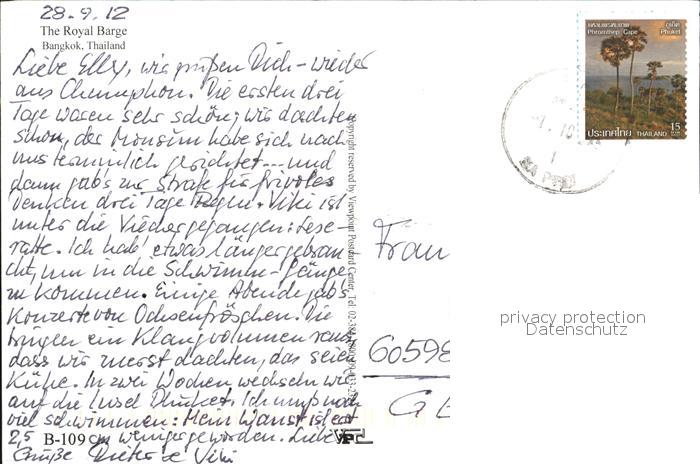 28.9.12
The Royal Barge
Bangkok, Thailand
Liebe Elly, wir grüßen Dich wieder
aus Chumphon. Die ersten drei
Tage waren sehr schön; wir dachten
schon, der Monsun habe sich nach
uns terminlich gerichtet --- und
dann gab's zur Strafe für frivoles
Denken drei Tage Regen. Viki ist
unter die Viecher gegangen: Lese-
ratte. Ich hab' etwas länger gebrau
cht, um in die Schwimm-Gänge
zu kommen. Einige Abende gab's
Konzerte von Ochsenfröschen. Die
bringen ein Klangvolumen raus,
dass wir zuerst dachten, das seien
Kühe. In zwei Wochen wechseln wir
auf die Insel Phuket. Ich muß noch
viel schwimmen: Mein Wanst ist erst
2,5 cm weniger geworden. Liebe
Grüße Dieter & Viki
B-109
Copyright reserved by Viewpoint Postcard Center, Tel.
VPC
แหลมพรหมเทพ ภูเก็ต
Phromthep Cape Phuket
ประเทศไทย THAILAND 15
Frau
60598
privacy protection
Datenschutz